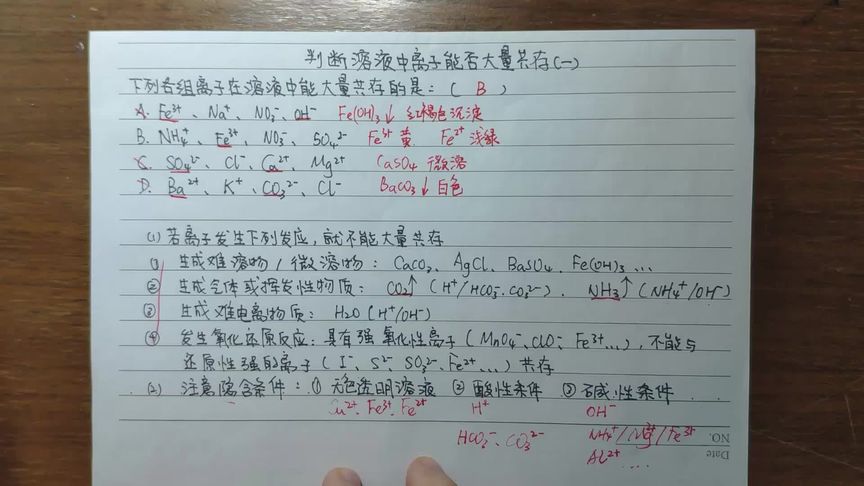 判断溶液中离子能否大量共存(一)
下列各组离子在溶液中能大量共存的是:( B )
A. Fe³⁺、Na⁺、NO₃⁻、OH⁻ Fe(OH)₃↓ 红褐色沉淀
B. NH₄⁺、Fe³⁺、NO₃⁻、SO₄²⁻ Fe³⁺ 黄 Fe²⁺ 浅绿
C. SO₄²⁻、Cl⁻、Ca²⁺、Mg²⁺ CaSO₄ 微溶
D. Ba²⁺、K⁺、CO₃²⁻、Cl⁻ BaCO₃↓ 白色
(1) 若离子发生下列发应,就不能大量共存
① 生成难溶物/微溶物: CaCO₃、AgCl、BaSO₄、Fe(OH)₃ ...
② 生成气体或挥发性物质: CO₂↑(H⁺/HCO₃⁻、CO₃²⁻)、NH₃↑(NH₄⁺/OH⁻)
③ 生成难电离物质: H₂O(H⁺/OH⁻)
④ 发生氧化还原反应: 具有强氧化性离子(MnO₄⁻、ClO⁻、Fe³⁺...),不能与
还原性强的离子(I⁻、S²⁻、SO₃²⁻、Fe²⁺...)共存
(2) 注意隐含条件: ① 无色透明溶液 ② 酸性条件 ③ 碱性条件
Cu²⁺、Fe³⁺、Fe²⁺ H⁺ OH⁻
HCO₃⁻、CO₃²⁻ NH₄⁺/Mg²⁺/Fe³⁺
Al²⁺ ....
NO.
Date